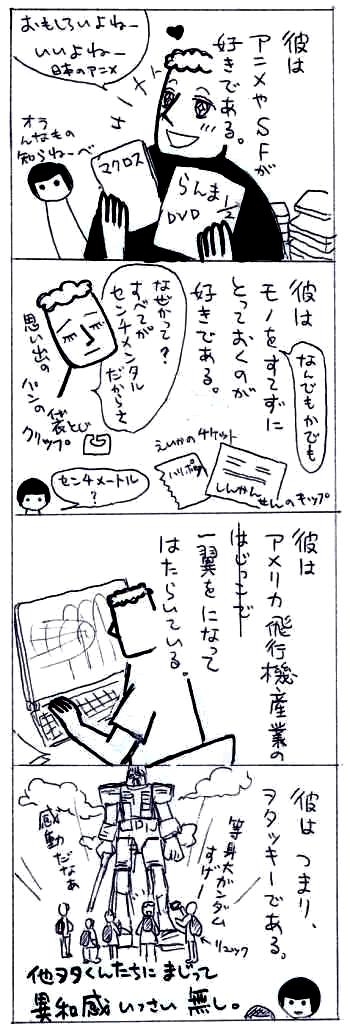 彼は
アニメやSFが
好きである。
おもしろいよねー
いいよねー
日本のアニメ
キラ
キラ
オラ
んなもの
知らねーべ
マクロス
らんま½
DVD
彼は
モノをすてずに
とっておくのが
好きである。
なんでもかでも
なぜかって?
すべてが
センチメンタル
だからさ
思い出の
パンの
袋とじ
クリップ
えいがのチケット
ハリポタ
しんかんせんのキップ
センチメートル
?
彼は
アメリカ飛行機産業の
はじっこで
一翼をになって
はたらいている。
彼は つまり、
ヲタッキーである。
等身大ガンダム
すげー
感動だなぁ
リュック
他ヲタくんたちに まじって
異和感 いっさい 無し。